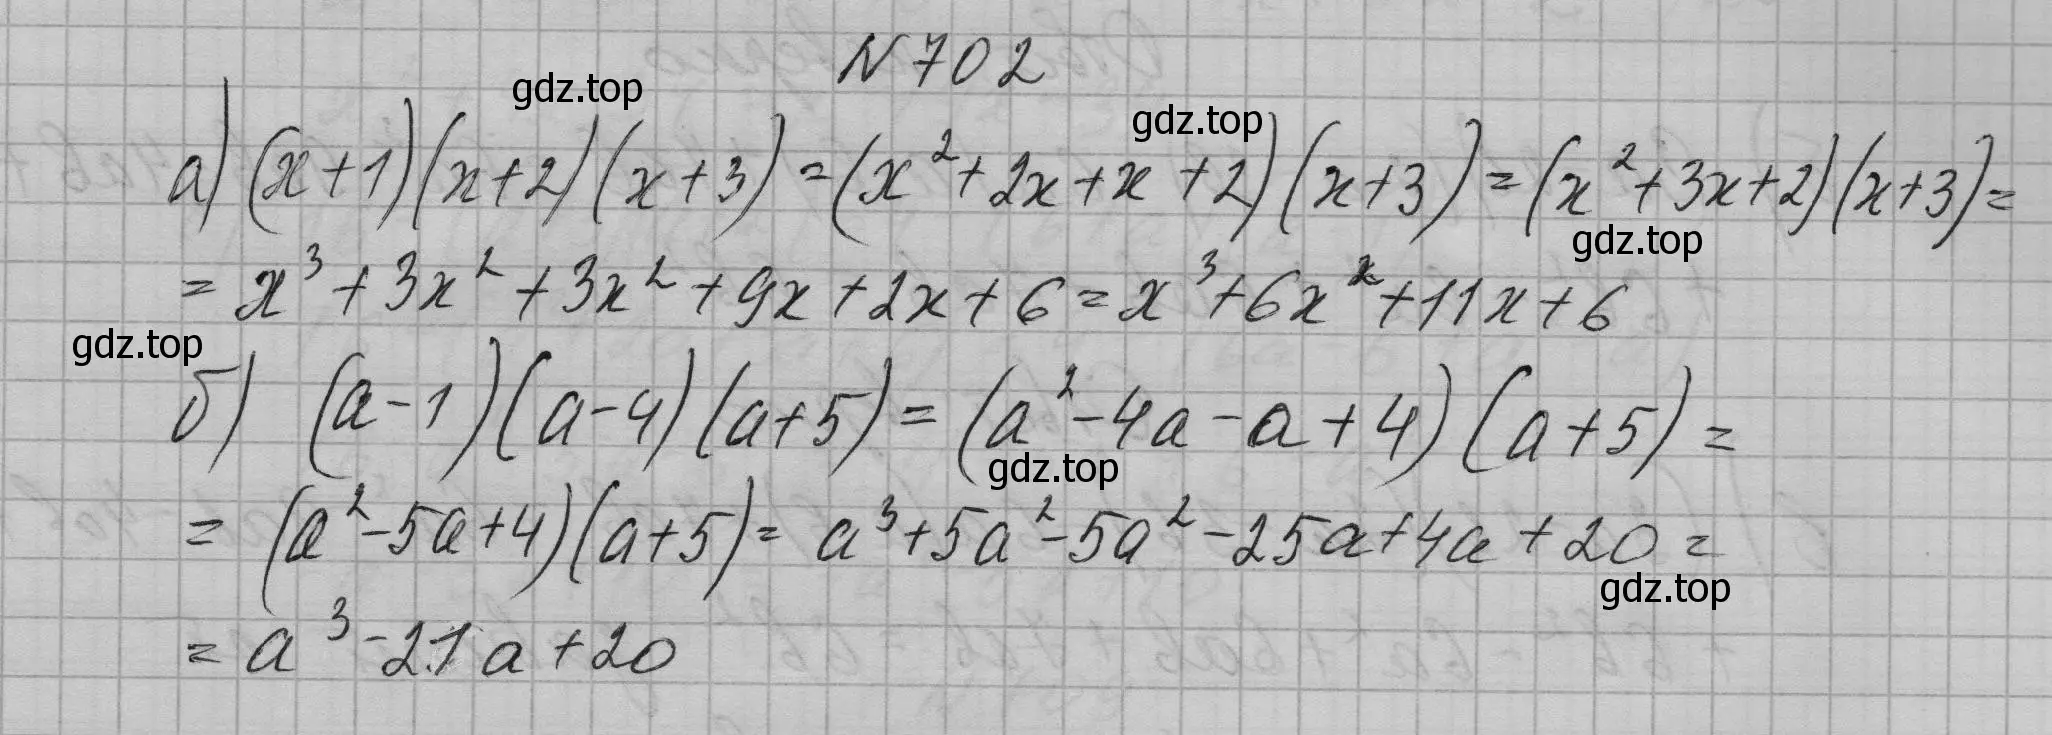 N 702
gdz.top
gdz.top
а) (x+1)(x+2)(x+3)=(x²+2x+x+2)(x+3)=(x²+3x+2)(x+3)=
gdz.top
= x³+3x²+3x²+9x+2x+6=x³+6x²+11x+6
gdz.top
б) (a-1)(a-4)(a+5)=(a²-4a-a+4)(a+5)=
gdz.top
= (a²-5a+4)(a+5)= a³+5a²-5a²-25a+4a+20=
gdz.top
= a³-21a+20